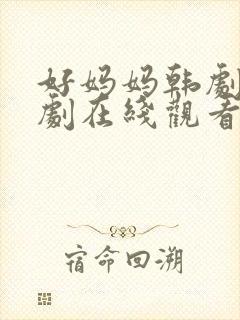 好妈妈韩剧
剧在线觀看
宿命回溯